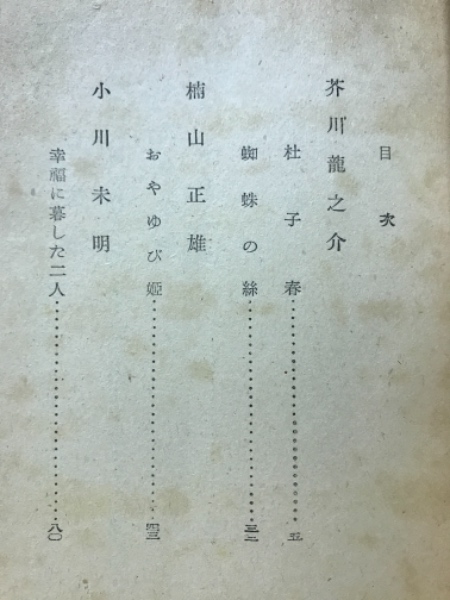 目次
芥川龍之介
杜子春……………………五
蜘蛛の絲……………………三二
楠山正雄
おやゆび姫……………………四三
小川未明
幸福に暮した二人……………………八〇